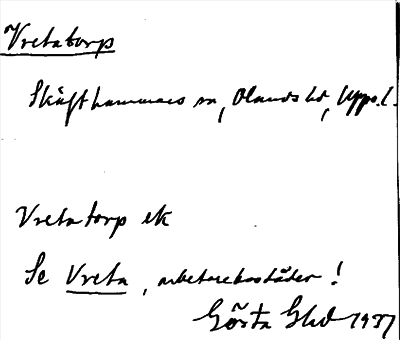 Vretatorp
Skäfthammars sn, Olands hd, Upps. l.
Vretatorp ek
Se Vreta, arbetarebostäder!
Gösta 1937